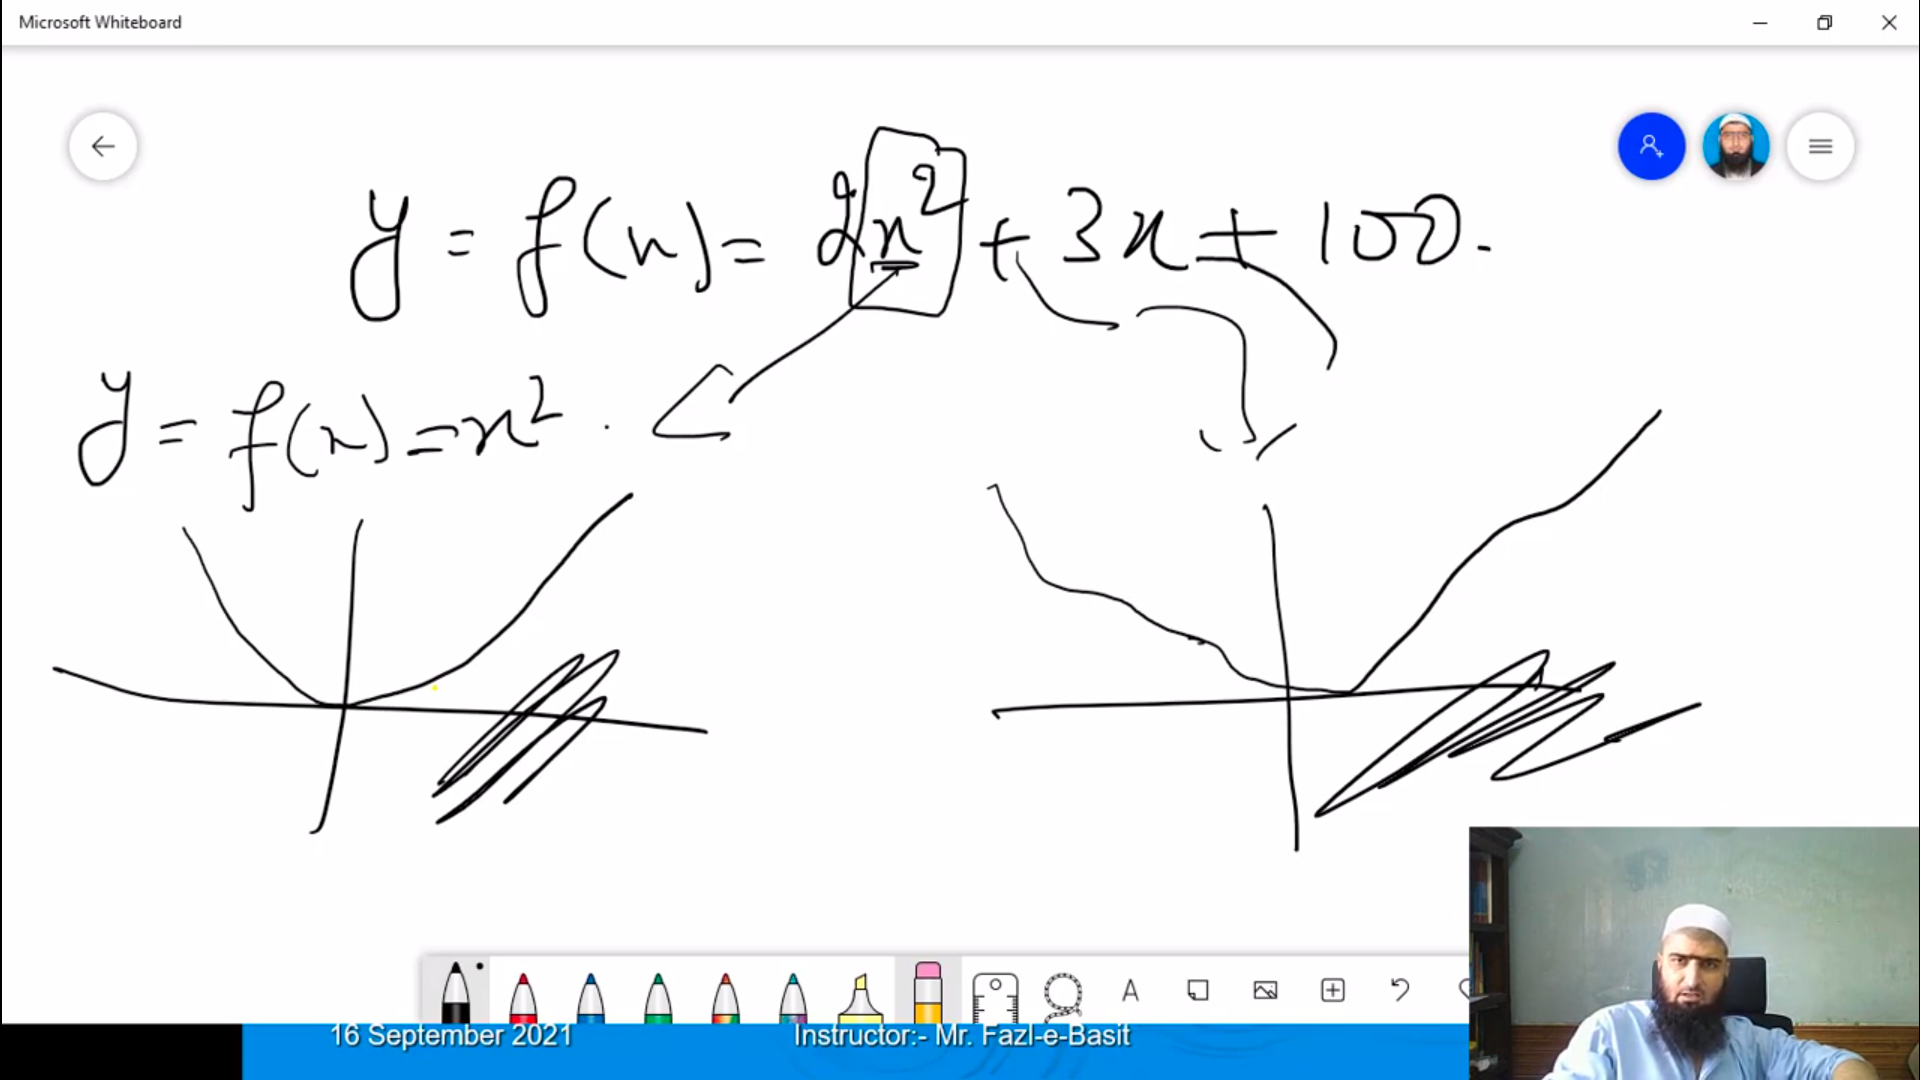 Microsoft Whiteboard
y = f(x) = 2x² + 3x + 100.
y = f(x) = x².
16 September 2021
Instructor:- Mr. Fazl-e-Basit